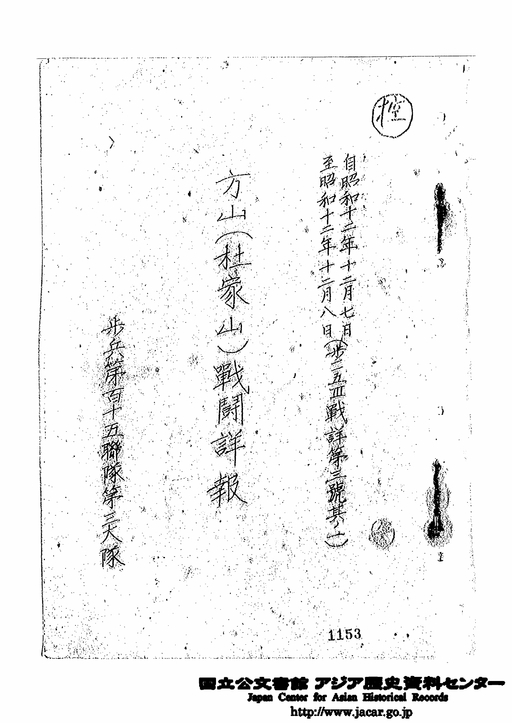 控
自昭和十二年十二月七日
至昭和十二年十二月八日
(歩一一五Ⅲ戰詳第三號其ノ一)
方山(杜家山)戰鬪詳報
歩兵第百十五聯隊第三大隊
1153
国立公文書館 アジア歴史資料センター
Japan Center for Asian Historical Records
http://www.jacar.go.jp